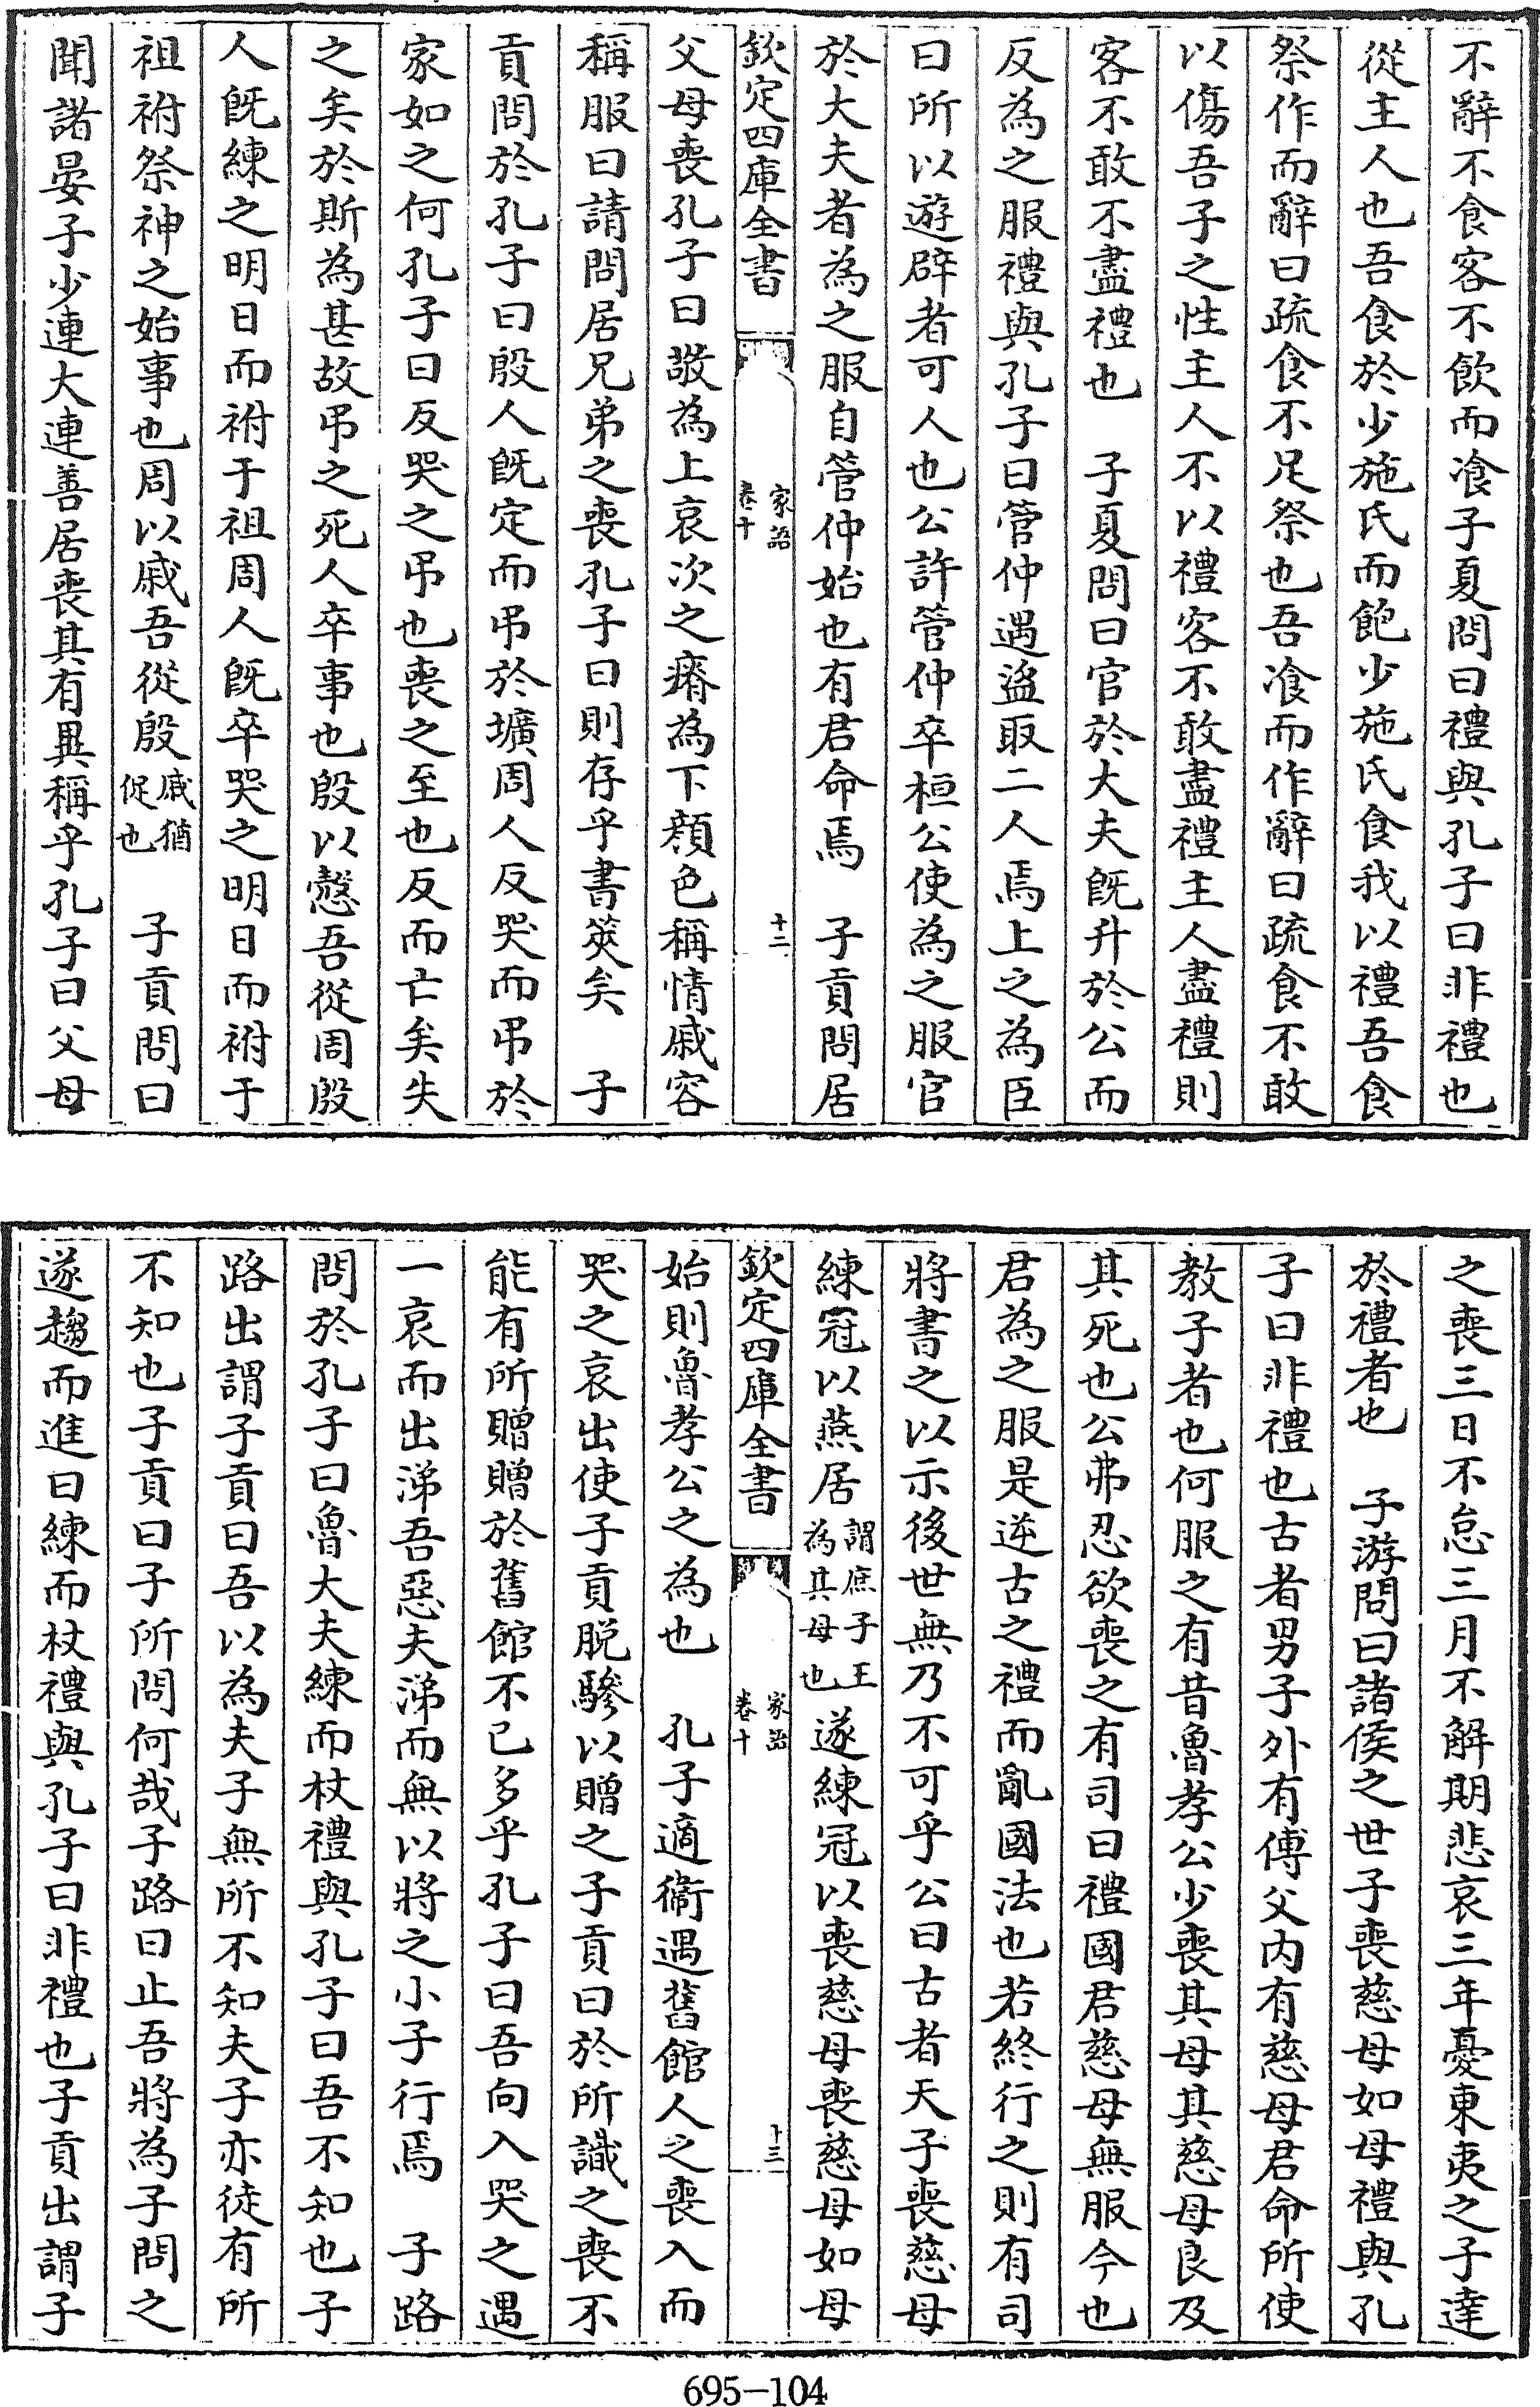 不辭不食客不飲而飡子夏問曰禮與孔子曰非禮也
從主人也吾食於少施氏而飽少施氏食我以禮吾食
祭作而辭曰疏食不足祭也吾飡而作辭曰疏食不敢
以傷吾子之性主人不以禮客不敢盡禮主人盡禮則
客不敢不盡禮也　子夏問曰官於大夫既升於公而
反為之服禮與孔子曰管仲遇盜取二人焉上之為臣
曰所以遊辟者可人也公許管仲卒桓公使為之服官
於大夫者為之服自管仲始也有君命焉　子貢問居
欽定四庫全書
家語
卷十
十二
父母喪孔子曰敬為上哀次之瘠為下顏色稱情戚容
稱服曰請問居兄弟之喪孔子曰則存乎書筴矣　子
貢問於孔子曰殷人既定而弔於壙周人反哭而弔於
家如之何孔子曰反哭之弔也喪之至也反而亡矣失
之矣於斯為甚故弔之死人卒事也殷以慤吾從周殷
人既練之明日而祔于祖周人既卒哭之明日而祔于
祖祔祭神之始事也周以戚吾從殷戚猶
促也
　子貢問曰
聞諸晏子少連大連善居喪其有異稱乎孔子曰父母
之喪三日不怠三月不解期悲哀三年憂東夷之子達
於禮者也　子游問曰諸侯之世子喪慈母如母禮與孔
子曰非禮也古者男子外有傅父內有慈母君命所使
教子者也何服之有昔魯孝公少喪其母其慈母良及
其死也公弗忍欲喪之有司曰禮國君慈母無服今也
君為之服是逆古之禮而亂國法也若終行之則有司
將書之以示後世無乃不可乎公曰古者天子喪慈母
練冠以燕居謂庶子王
為其母也
遂練冠以喪慈母喪慈母如母
欽定四庫全書
家語
卷十
十三
始則魯孝公之為也　孔子適衞遇舊館人之喪入而
哭之哀出使子貢脫驂以贈之子貢曰於所識之喪不
能有所贈贈於舊館不已多乎孔子曰吾向入哭之遇
一哀而出涕吾惡夫涕而無以將之小子行焉　子路
問於孔子曰魯大夫練而杖禮與孔子曰吾不知也子
路出謂子貢曰吾以為夫子無所不知夫子亦徒有所
不知也子貢曰子所問何哉子路曰止吾將為子問之
遂趨而進曰練而杖禮與孔子曰非禮也子貢出謂子
695-104